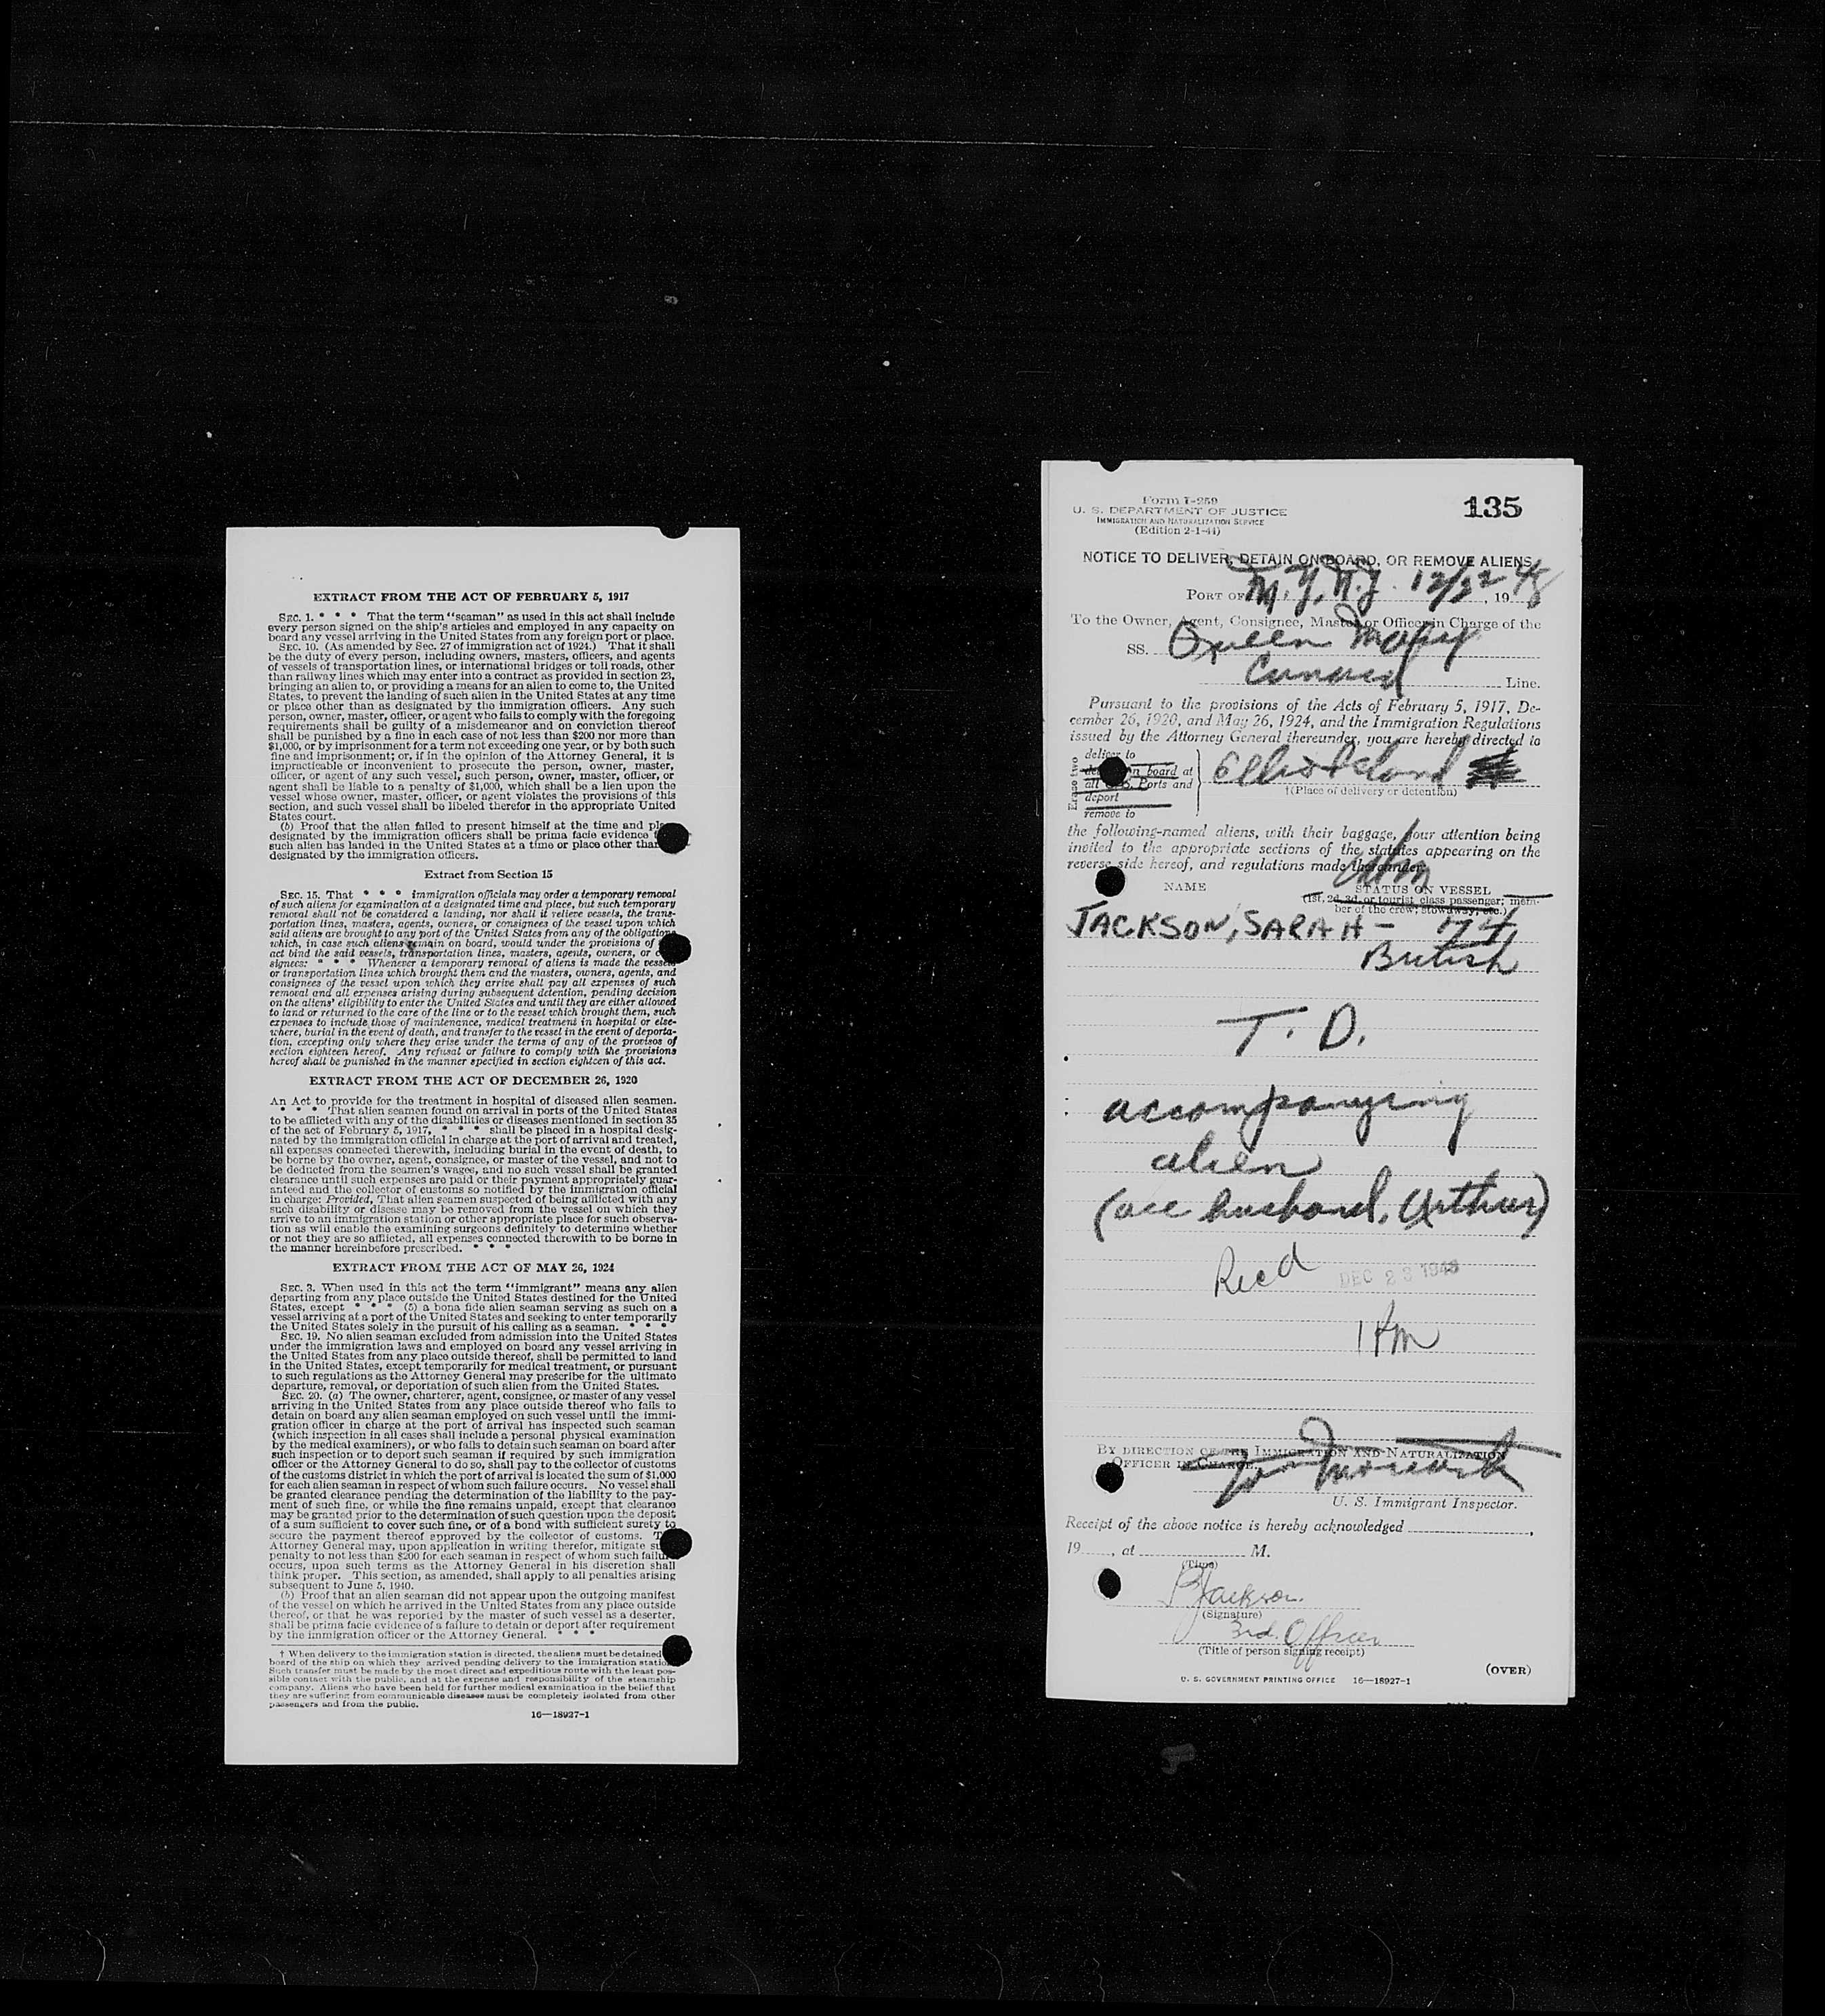 EXTRACT FROM THE ACT OF FEBRUARY 5, 1917
SEC. 1. * * * That the term "seaman" as used in this act shall include
every person signed on the ship's articles and employed in any capacity on
board any vessel arriving in the United States from any foreign port or place.
SEC. 10. (As amended by Sec. 27 of immigration act of 1924.) That it shall
be the duty of every person, including owners, masters, officers, and agents
of vessels of transportation lines, or international bridges or toll roads, other
than railway lines which may enter into a contract as provided in section 23,
bringing an alien to, or providing a means for an alien to come to, the United
States, to prevent the landing of such alien in the United States at any time
or place other than as designated by the immigration officers. Any such
person, owner, master, officer, or agent who fails to comply with the foregoing
requirements shall be guilty of a misdemeanor and on conviction thereof
shall be punished by a fine in each case of not less than $200 nor more than
$1,000, or by imprisonment for a term not exceeding one year, or by both such
fine and imprisonment; or, if in the opinion of the Attorney General, it is
impracticable or inconvenient to prosecute the person, owner, master,
officer, or agent of any such vessel, such person, owner, master, officer, or
agent shall be liable to a penalty of $1,000, which shall be a lien upon the
vessel whose owner, master, officer, or agent violates the provisions of this
section, and such vessel shall be libeled therefor in the appropriate United
States court.
(b) Proof that the alien failed to present himself at the time and
designated by the immigration officers shall be prima facie evidence
such alien has landed in the United States at a time or place other than
designated by the immigration officers.
Extract from Section 15
SEC. 15. That * * * immigration officials may order a temporary removal
of such aliens for examination at a designated time and place, but such temporary
removal shall not be considered a landing, nor shall it relieve vessels, the trans-
portation lines, masters, agents, owners, or consignees of the vessel upon which
said aliens are brought to any port of the United States from any of the obligations
which, in case such aliens remain on board, would under the provisions of
act bind the said vessels, transportation lines, masters, agents, owners, or
signees: * * * Whenever a temporary removal of aliens is made the vessels
or transportation lines which brought them and the masters, owners, agents, and
consignees of the vessel upon which they arrive shall pay all expenses of such
removal and all expenses arising during subsequent detention, pending decision
on the aliens' eligibility to enter the United States and until they are either allowed
to land or returned to the care of the line or to the vessel which brought them, such
expenses to include those of maintenance, medical treatment in hospital or else-
where, burial in the event of death, and transfer to the vessel in the event of deporta-
tion, excepting only where they arise under the terms of any of the provisos of
section eighteen hereof. Any refusal or failure to comply with the provisions
hereof shall be punished in the manner specified in section eighteen of this act.
EXTRACT FROM THE ACT OF DECEMBER 26, 1920
An Act to provide for the treatment in hospital of diseased alien seamen.
* * * That alien seamen found on arrival in ports of the United States
to be afflicted with any of the disabilities or diseases mentioned in section 35
of the act of February 5, 1917, * * * shall be placed in a hospital desig-
nated by the immigration official in charge at the port of arrival and treated,
all expenses connected therewith, including burial in the event of death, to
be borne by the owner, agent, consignee, or master of the vessel, and not to
be deducted from the seamen's wages, and no such vessel shall be granted
clearance until such expenses are paid or their payment appropriately guar-
anteed and the collector of customs so notified by the immigration official
in charge: Provided, That alien seamen suspected of being afflicted with any
such disability or disease may be removed from the vessel on which they
arrive to an immigration station or other appropriate place for such observa-
tion as will enable the examining surgeons definitely to determine whether
or not they are so afflicted, all expenses connected therewith to be borne in
the manner hereinbefore prescribed. * * *
EXTRACT FROM THE ACT OF MAY 26, 1924
SEC. 3. When used in this act the term "immigrant" means any alien
departing from any place outside the United States destined for the United
States, except * * * (5) a bona fide alien seaman serving as such on a
vessel arriving at a port of the United States and seeking to enter temporarily
the United States solely in the pursuit of his calling as a seaman. * * *
SEC. 19. No alien seaman excluded from admission into the United States
under the immigration laws and employed on board any vessel arriving in
the United States from any place outside thereof, shall be permitted to land
in the United States, except temporarily for medical treatment, or pursuant
to such regulations as the Attorney General may prescribe for the ultimate
departure, removal, or deportation of such alien from the United States.
SEC. 20. (a) The owner, charterer, agent, consignee, or master of any vessel
arriving in the United States from any place outside thereof who fails to
detain on board any alien seaman employed on such vessel until the immi-
gration officer in charge at the port of arrival has inspected such seaman
(which inspection in all cases shall include a personal physical examination
by the medical examiners), or who fails to detain such seaman on board after
such inspection or to deport such seaman if required by such immigration
officer or the Attorney General to do so, shall pay to the collector of customs
of the customs district in which the port of arrival is located the sum of $1,000
for each alien seaman in respect of whom such failure occurs. No vessel shall
be granted clearance pending the determination of the liability to the pay-
ment of such fine, or while the fine remains unpaid, except that clearance
may be granted prior to the determination of such question upon the deposit
of a sum sufficient to cover such fine, or of a bond with sufficient surety to
secure the payment thereof approved by the collector of customs.
Attorney General may, upon application in writing therefor, mitigate
penalty to not less than $200 for each seaman in respect of whom such failure
occurs, upon such terms as the Attorney General in his discretion shall
think proper. This section, as amended, shall apply to all penalties arising
subsequent to June 5, 1940.
(b) Proof that an alien seaman did not appear upon the outgoing manifest
of the vessel on which he arrived in the United States from any place outside
thereof, or that he was reported by the master of such vessel as a deserter,
shall be prima facie evidence of a failure to detain or deport after requirement
by the immigration officer or the Attorney General. * * *
† When delivery to the immigration station is directed, the aliens must be detained
board of the ship on which they arrived pending delivery to the immigration station.
Such transfer must be made by the most direct and expeditious route with the least pos-
sible contact with the public, and at the expense and responsibility of the steamship
company. Aliens who have been held for further medical examination in the belief that
they are suffering from communicable diseases must be completely isolated from other
passengers and from the public.
16—18927-1
Form I-259
U. S. DEPARTMENT OF JUSTICE
IMMIGRATION AND NATURALIZATION SERVICE
(Edition 2-1-44)
135
NOTICE TO DELIVER, DETAIN ON BOARD, OR REMOVE ALIENS
PORT OF N.Y, N.Y. 12/22, 1948
To the Owner, Agent, Consignee, Master or Officer in Charge of the
SS. Queen Mary
Cunard Line.
Pursuant to the provisions of the Acts of February 5, 1917, De-
cember 26, 1920, and May 26, 1924, and the Immigration Regulations
issued by the Attorney General thereunder, you are hereby directed to
Erase two
deliver to
on board at
all Ports and
deport
remove to
Ellis Island
†(Place of delivery or detention)
the following-named aliens, with their baggage, your attention being
invited to the appropriate sections of the statutes appearing on the
reverse side hereof, and regulations made thereunder:
NAME STATUS ON VESSEL
(1st, 2d, 3d, or tourist class passenger; mem-
ber of the crew; stowaway; etc.)
JACKSON, SARAH - 74
British
T. D.
accompanying
alien
(see husband, Arthur)
Recd DEC 23 1948
1 PM
BY DIRECTION OF THE IMMIGRATION AND NATURALIZATION
OFFICER IN CHARGE.
U. S. Immigrant Inspector.
Receipt of the above notice is hereby acknowledged
19 , at M.
(Time)
Jackson.
(Signature)
3rd. Officer
(Title of person signing receipt)
U. S. GOVERNMENT PRINTING OFFICE 16—18927-1
(OVER)